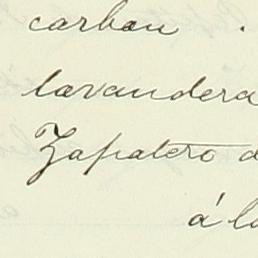 carbon .
lavandera
Zapatero d
á la